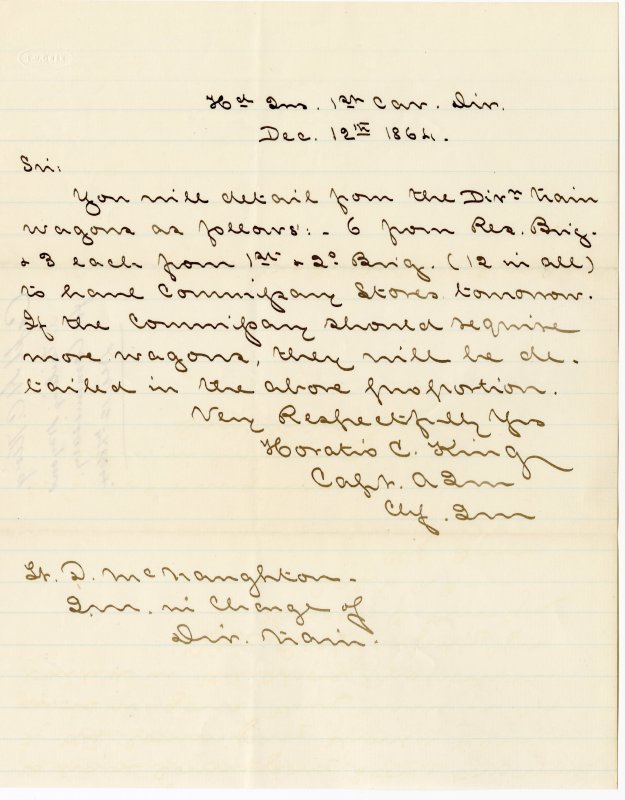 Hd Qrs. 1st Cav. Div.
Dec. 12th 1864.
Sir:
You will detail from the Divn train
wagons as follows: - 6 from Res. Brig.
& 3 each from 1st & 2d Brig. (12 in all)
to haul Commissary Stores tomorrow.
If the Commissary should require
more wagons, they will be de-
tailed in the above proportion.
Very Respectfully Yrs
Horatio C. King
Capt. AQM
Chf. QM
Lt. D. McNaughton-
Q.M. in Charge of
Div. train.